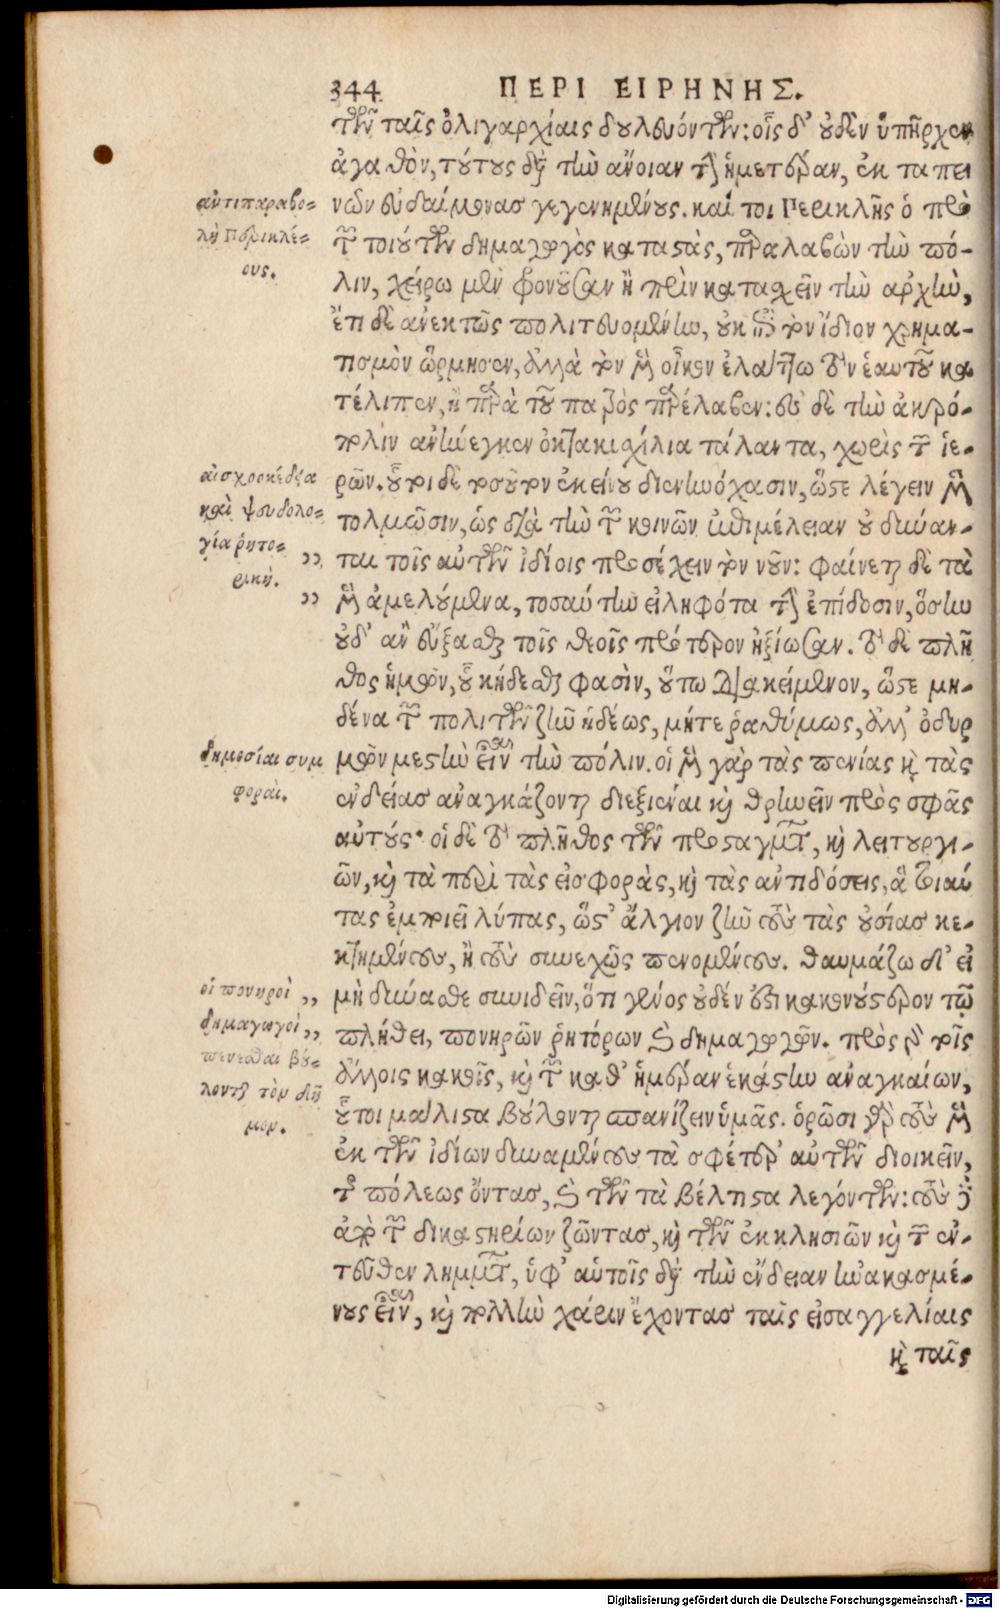 344 ΠΕΡΙ ΕΙΡΗΝΗΣ.
τῶν ταῖς ὀλιγαρχίαις δουλευόντων: οἷς δ' οὐδὲν ὑπῆρχεν
ἀγαθὸν, τούτους διὰ τὴν ἄνοιαν τὴν ἡμετέραν, ἐκ ταπει
ἀντιπαραβο-
νῶν εὐδαίμονας γεγενημένους. καί τοι Περικλῆς ὁ πρὸ
λὴ Περικλέ-
τῶν τοιούτων δημαγωγὸς καταστὰς, παραλαβὼν τὴν πό-
ους.
λιν, χείρω μὲν φρονοῦσαν ἢ πρὶν κατασχεῖν τὴν ἀρχὴν,
ἔτι δὲ ἀνεκτῶς πολιτευομένην, οὐκ ἐπὶ τὸν ἴδιον χρημα-
τισμὸν ὥρμησεν, ἀλλὰ τὸν μὲν οἶκον ἐλάττω τὸν ἑαυτοῦ κα
τέλιπεν, ἢ παρὰ τοῦ πατρὸς παρέλαβεν: εἰς δὲ τὴν ἀκρό-
πολιν ἀνήνεγκεν ὀκτακισχίλια τάλαντα, χωρὶς τῶν ἱε-
αἰσχροκέρδεια
ρῶν. οὗτοι δὲ τοσοῦτον ἐκείνου διενηνόχασιν, ὥστε λέγειν μὲν
καὶ ψευδολο-
τολμῶσιν, ὡς διὰ τὴν τῶν κοινῶν ἐπιμέλειαν οὐ δύναν-
γία ῥητο-
,, ται τοῖς αὑτῶν ἰδίοις προσέχειν τὸν νοῦν: φαίνεται δὲ τὰ
ρική.
,, μὲν ἀμελούμενα, τοσαύτην εἰληφότα τὴν ἐπίδοσιν, ὅσην
οὐδ' ἂν εὔξασθαι τοῖς θεοῖς πρότερον ἠξίωσαν. τὸ δὲ πλῆ
θος ἡμῶν, οὗ κήδεσθαι φασὶν, οὕτω διακείμενον, ὥστε μη-
δένα τῶν πολιτῶν ζῆν ἡδέως, μήτε ῥαθύμως, ἀλλ' ὀδυρ
δημοσίαι συμ
μῶν μεστὴν εἶναι τὴν πόλιν. οἱ μὲν γὰρ τὰς πενίας καὶ τὰς
φοραί.
ἐνδείας ἀναγκάζονται διεξιέναι καὶ θρηνεῖν πρὸς σφᾶς
αὐτούς· οἱ δὲ τὸ πλῆθος τῶν προσταγμάτων, καὶ λειτουργι-
ῶν, καὶ τὰ περὶ τὰς εἰσφορὰς, καὶ τὰς ἀντιδόσεις, ἃ τοιαύ
τας ἐμποιεῖ λύπας, ὥστ' ἄλγιον ζῆν τοὺς τὰς οὐσίας κε-
κτημένους, ἢ τοὺς συνεχῶς πενομένους. θαυμάζω δ' εἰ
οἱ πονηροὶ
,, μὴ δύνασθε συνιδεῖν, ὅτι γένος οὐδέν ἐστι κακονούστερον τῷ
δημαγωγοὶ
,, πλήθει, πονηρῶν ῥητόρων καὶ δημαγωγῶν. πρὸς γὰρ τοῖς
πένεσθαι βού-
ἄλλοις κακοῖς, καὶ τῶν καθ' ἡμέραν ἑκάστην ἀναγκαίων,
λονται τὸν δῆ
οὗτοι μάλιστα βούλονται σπανίζειν ὑμᾶς. ὁρῶσι γὰρ τοὺς μὲν
μον.
ἐκ τῶν ἰδίων δυναμένους τὰ σφέτερ' αὐτῶν διοικεῖν,
τῆς πόλεως ὄντας, καὶ τῶν τὰ βέλτιστα λεγόντων: τοὺς δ'
ἀπὸ τῶν δικαστηρίων ζῶντας, καὶ τῶν ἐκκλησιῶν καὶ τῶν ἐν-
τεῦθεν λημμάτων, ὑφ' αὑτοῖς διὰ τὴν ἔνδειαν ἠναγκασμέ-
νους εἶναι, καὶ πολλὴν χάριν ἔχοντας ταῖς εἰσαγγελίαις
καὶ ταῖς
Digitalisierung gefördert durch die Deutsche Forschungsgemeinschaft - DFG